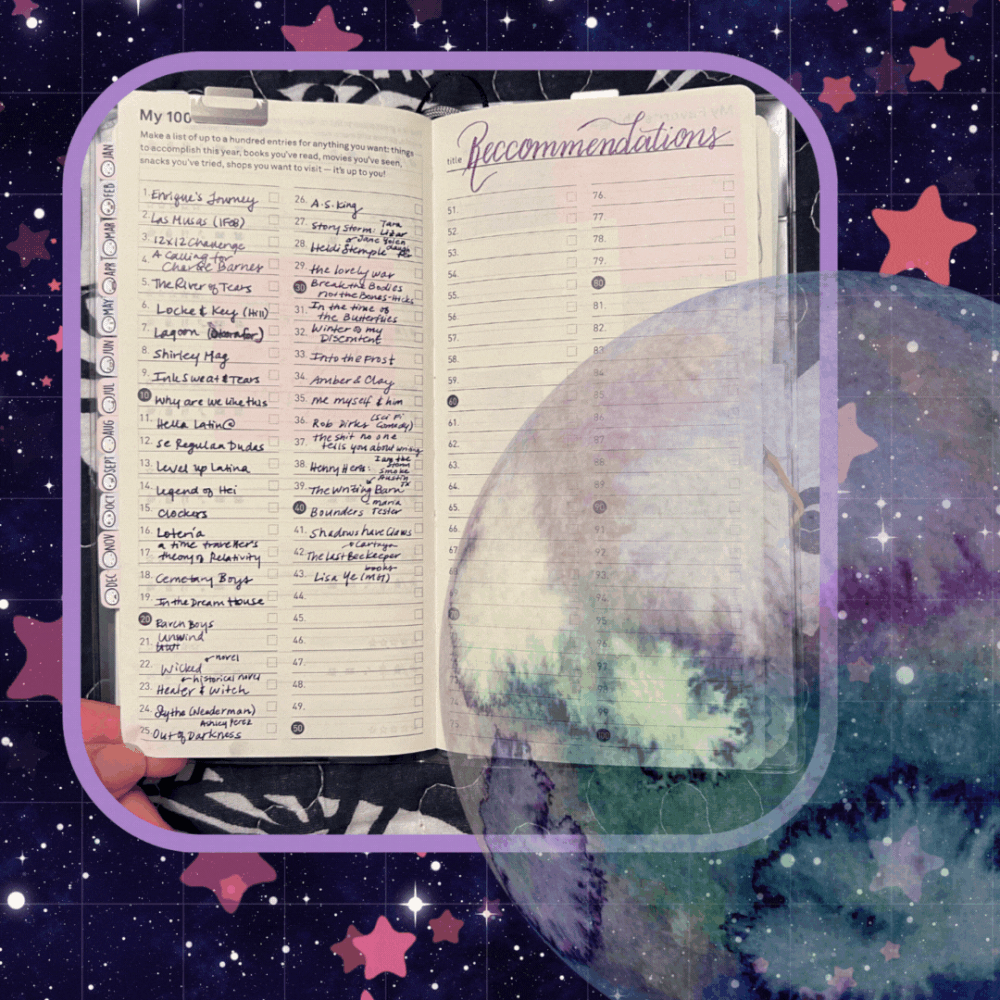 My 100
Make a list of up to a hundred entries for anything you want: things
to accomplish this year, books you've read, movies you've seen,
snacks you've tried, shops you want to visit — it's up to you!
JAN
FEB
MAR
APR
MAY
JUN
JUL
AUG
SEPT
OCT
NOV
DEC
1. Enrique's Journey
2. Las Musas (IFOB)
3. 12x12 Challenge
4. A Calling for
Charlie Barnes
5. The River of Tears
6. Locke & Key (Hill)
7. Lagoon
8. Shirley Mag
9. Ink Sweat & Tears
10 Why are we like this
11. Hella Latin@
12. Se Regulan Dudas
13. Level up Latina
14. Legend of Hei
15. Clockers
16. Lotería
17. a time traveller's
theory of Relativity
18. Cemetary Boys
19. In the Dream House
20 Raven Boys
21. Unwind
22. Wicked novel
23. historical novel
Healer & Witch
24. Scythe (Neaderman)
25. Ashley Perez
Out of Darkness
26. A.S. King
27. Story Storm: Tara
Lazar
28. Heidi Stemple & Jane Yolen
29. the lovely war
30 Break the Bodies
not the Bones - Hicks
31. In the time of
the Butterflies
32. Winter of my
Discontent
33. Into the Frost
34. Amber & Clay
35. me myself & him
36. Rob Dirks (Sci Fi
Comedy)
37. The shit no one
tells you about writing
38. Henry Herz: I am the
Storm
Smoke
39. The Writing Barn Austin
TX
40 Bounders maria
Tesler
41. Shadows have Claws
42. The Last Beekeeper
43. Lisa Ye (MG) books
44.
45.
46.
47.
48.
49.
50
title Reccommendations
51.
52.
53.
54.
55.
56.
57.
58.
59.
60
61.
62.
63.
64.
65.
66.
67.
75.
76.
77.
78.
79.
80
81.
82.
83.
84.
85.
86.
87.
88.
89.
90
92.
93.
94.
95.
96.
97.